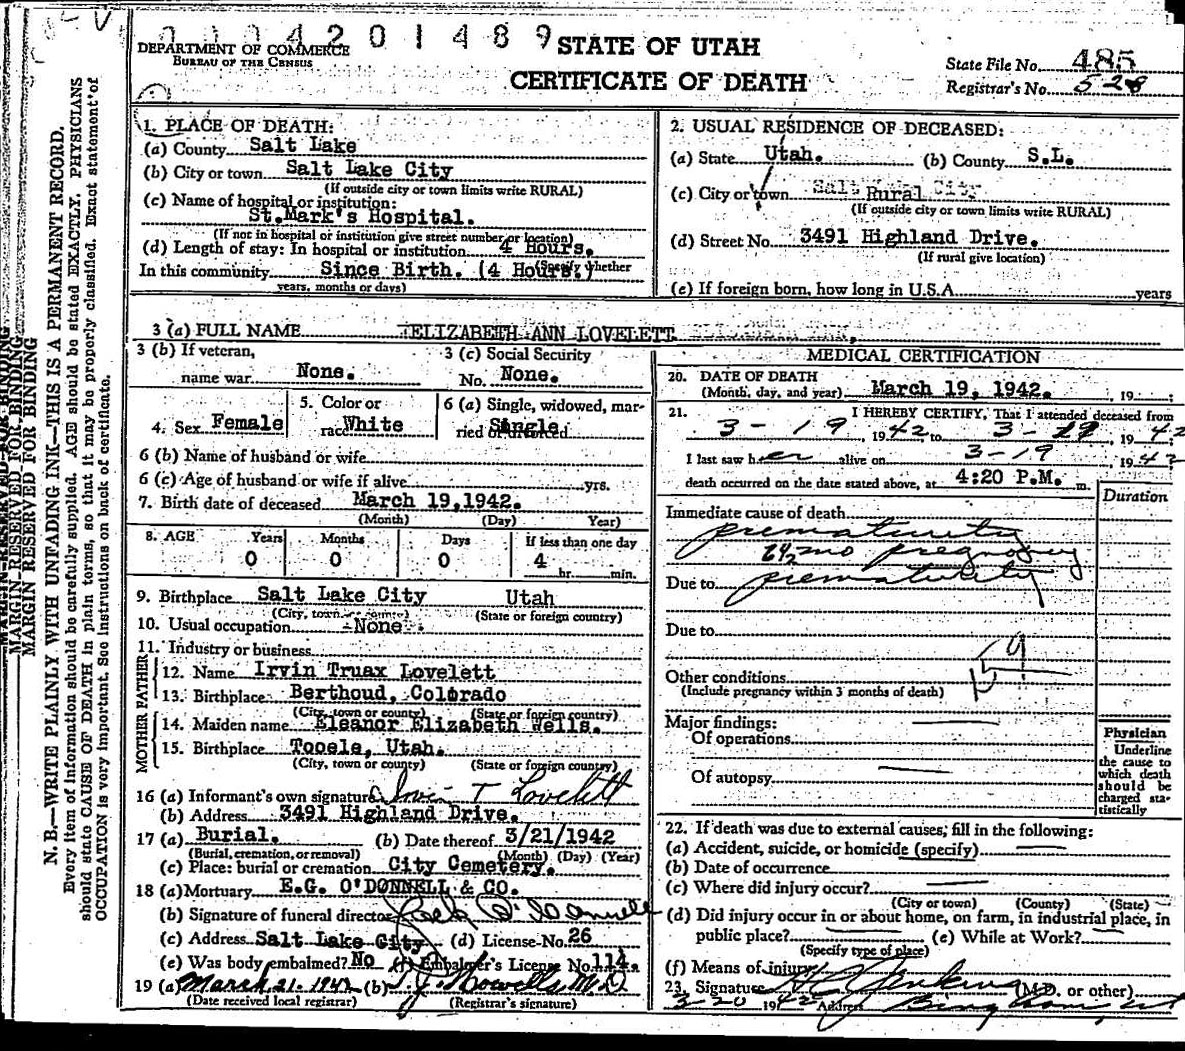 0004201489
DEPARTMENT OF COMMERCE
BUREAU OF THE CENSUS
STATE OF UTAH
CERTIFICATE OF DEATH
State File No. 485
Registrar's No. 528
MARGIN RESERVED FOR BINDING
N. B.—WRITE PLAINLY WITH UNFADING INK—THIS IS A PERMANENT RECORD.
Every item of information should be carefully supplied. AGE should be stated EXACTLY. PHYSICIANS
should state CAUSE OF DEATH in plain terms, so that it may be properly classified. Exact statement of
OCCUPATION is very important. See instructions on back of certificate.
1. PLACE OF DEATH:
(a) County Salt Lake
(b) City or town Salt Lake City
(If outside city or town limits write RURAL)
(c) Name of hospital or institution:
St.Mark's Hospital.
(If not in hospital or institution give street number or location)
(d) Length of stay: In hospital or institution 4 Hours.
(Specify whether
In this community Since Birth. (4 Hours.)
years, months or days)
2. USUAL RESIDENCE OF DECEASED:
(a) State Utah. (b) County S.L.
(c) City or town Salt Lake City Rural
(If outside city or town limits write RURAL)
(d) Street No. 3491 Highland Drive.
(If rural give location)
(e) If foreign born, how long in U.S.A. years
3 (a) FULL NAME ELIZABETH ANN LOVELETT
3 (b) If veteran,
name war None.
3 (c) Social Security
No. None.
4. Sex Female
5. Color or
race White
6 (a) Single, widowed, mar-
ried or divorced Single
6 (b) Name of husband or wife
6 (c) Age of husband or wife if alive yrs.
7. Birth date of deceased March 19,1942.
(Month) (Day) Year)
8. AGE Years Months Days If less than one day
0 0 0 4 hr. min.
9. Birthplace Salt Lake City Utah
(City, town or county) (State or foreign country)
10. Usual occupation None
11. Industry or business
FATHER
12. Name Irvin Truax Lovelett
13. Birthplace Berthoud, Colorado
(City, town or county) (State or foreign country)
MOTHER
14. Maiden name Eleanor Elizabeth Wells.
15. Birthplace Tooele, Utah.
(City, town or county) (State or foreign country)
16 (a) Informant's own signature Irvin T Lovelett
(b) Address 3491 Highland Drive.
17 (a) Burial. (b) Date thereof 3/21/1942
(Burial, cremation, or removal) (Month) (Day) (Year)
(c) Place: burial or cremation City Cemetery.
18 (a) Mortuary E.G. O'DONNELL & CO.
(b) Signature of funeral director Jack O'Donnell
(c) Address Salt Lake City (d) License No. 26
(e) Was body embalmed? No (f) Embalmer's License No. 114.
19 (a) March 21. 1942 (b) T.J. Howells M.D.
(Date received local registrar) (Registrar's signature)
MEDICAL CERTIFICATION
20. DATE OF DEATH
(Month, day, and year) March 19, 1942. , 19 ;
21. I HEREBY CERTIFY, That I attended deceased from
3-19, 1942 to 3-19, 1942
I last saw her alive on 3-19 1942
death occurred on the date stated above, at 4:20 P.M. m.
Duration
Immediate cause of death
prematurity
6½ mo pregnancy
Due to prematurity
Due to
159
Other conditions
(Include pregnancy within 3 months of death)
Major findings:
Of operations
Of autopsy
Physician
Underline
the cause to
which death
should be
charged sta-
tistically
22. If death was due to external causes, fill in the following:
(a) Accident, suicide, or homicide (specify)
(b) Date of occurrence
(c) Where did injury occur?
(City or town) (County) (State)
(d) Did injury occur in or about home, on farm, in industrial place, in
public place? (e) While at Work?
(Specify type of place)
(f) Means of injury
23. Signature Jenkins (M.D. or other)
3-20 1942 Address Bingham, Ut